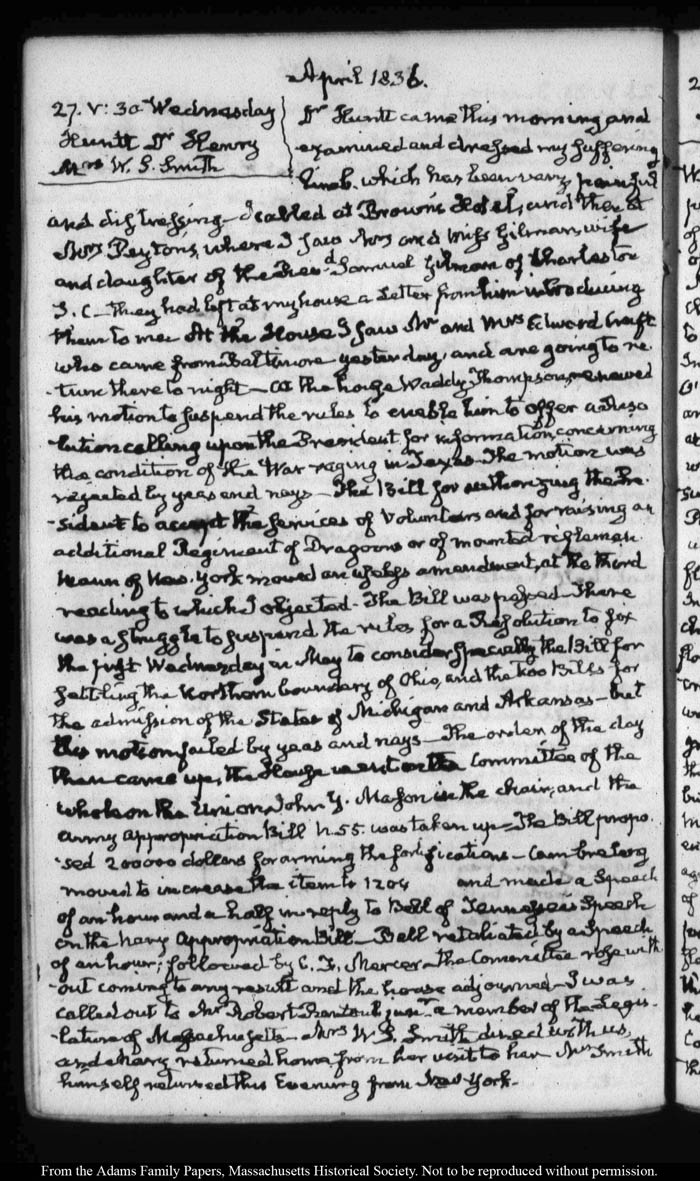 April 1836.
27. V: 30 Wednesday
Huntt Dr Henry
Mrs W. S. Smith
Dr Huntt came this morning and
examined and dressed my suffering
limb. which has been very painful
and distressing. I called at Brown's Hotel, and then at
Mrs Peyton's, where I saw Mrs and Miss Gilman, wife
and daughter of the Revd Samuel Gilman of Charleston
S. C— They had left at my house a Letter from him introducing
them to me. At the House I saw Mr and Mrs Edward Croft
who came from Baltimore yesterday, and are going to re-
-turn there to night— At the house Waddy Thompson, renewed
his motion to suspend the rules to enable him to offer a Reso
-lution calling upon the President for information, concerning
the condition of the War raging in Texas. The motion was
rejected by yeas and nays— The Bill for authorizing the Pre-
-sident to accept the services of Volunteers and for raising an
additional Regiment of Dragoons or of mounted riflemen.
Mann of New-York moved an amendment, at the third
reading to which I objected. The Bill was passed. There
was a struggle to suspend the rules for a Resolution to fix
the first Wednesday in May to consider specially the Bill for
settling the Northern boundary of Ohio, and the two Bills for
the admission of the States of Michigan and Arkansas— but
this motion failed by yeas and nays— The orders of the day
then came up, the House went into Committee of the
whole on the Union, John Y. Mason in the chair, and the
Army appropriation Bill N. 55. was taken up— The Bill propo-
-sed 200000 dollars for arming the fortifications— Cambreleng
moved to increase the item to and made a Speech
of an hour and a half in reply to Bell of Tennessee's Speech
on the Navy Appropriation Bill— Bell retaliated by a Speech
of an hour; followed by C. F. Mercer— the Committee rose with-
-out coming to any result and the house adjourned— I was
called out to Mr Robert Rantoul junr a member of the Legis-
-lature of Massachusetts— Mrs W. S. Smith dined with us,
and Mary returned home from her visit to her. Mr Smith
himself returned this Evening from New-York.
From the Adams Family Papers, Massachusetts Historical Society. Not to be reproduced without permission.